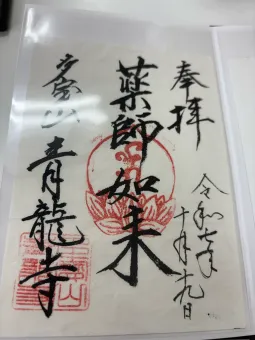 奉拝
令和七年
十月十九日
薬師如来
山 青龍寺